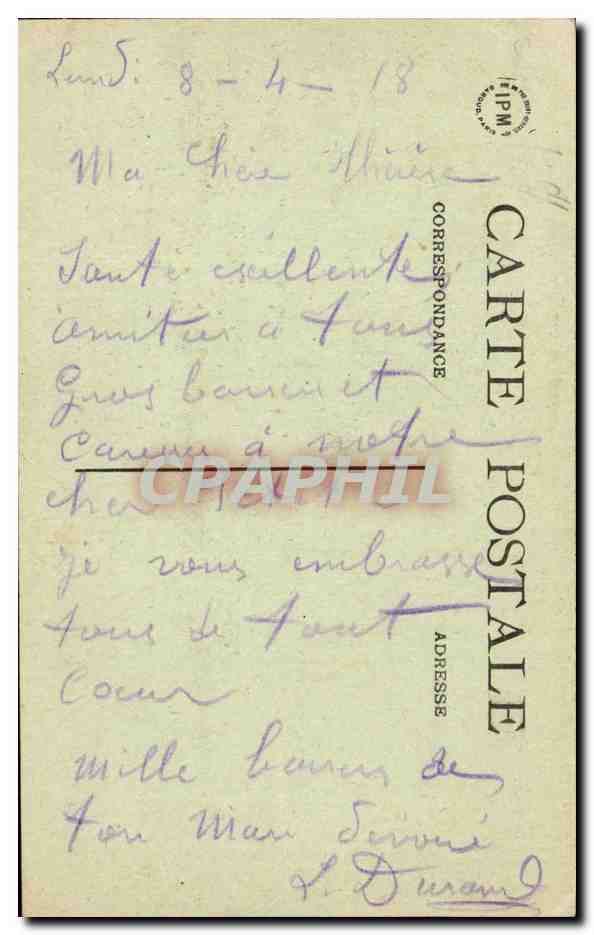 Lundi 8 - 4 - 18
Ma Chère
Santé excellente
amitiés à tous
Gros baisers et
à notre
cher
je vous embrasse
tous de tout
Cœur
mille baisers de
ton Mari dévoué
L. Durand
CARTE POSTALE
CORRESPONDANCE
ADRESSE
IPM
CPAPHIL